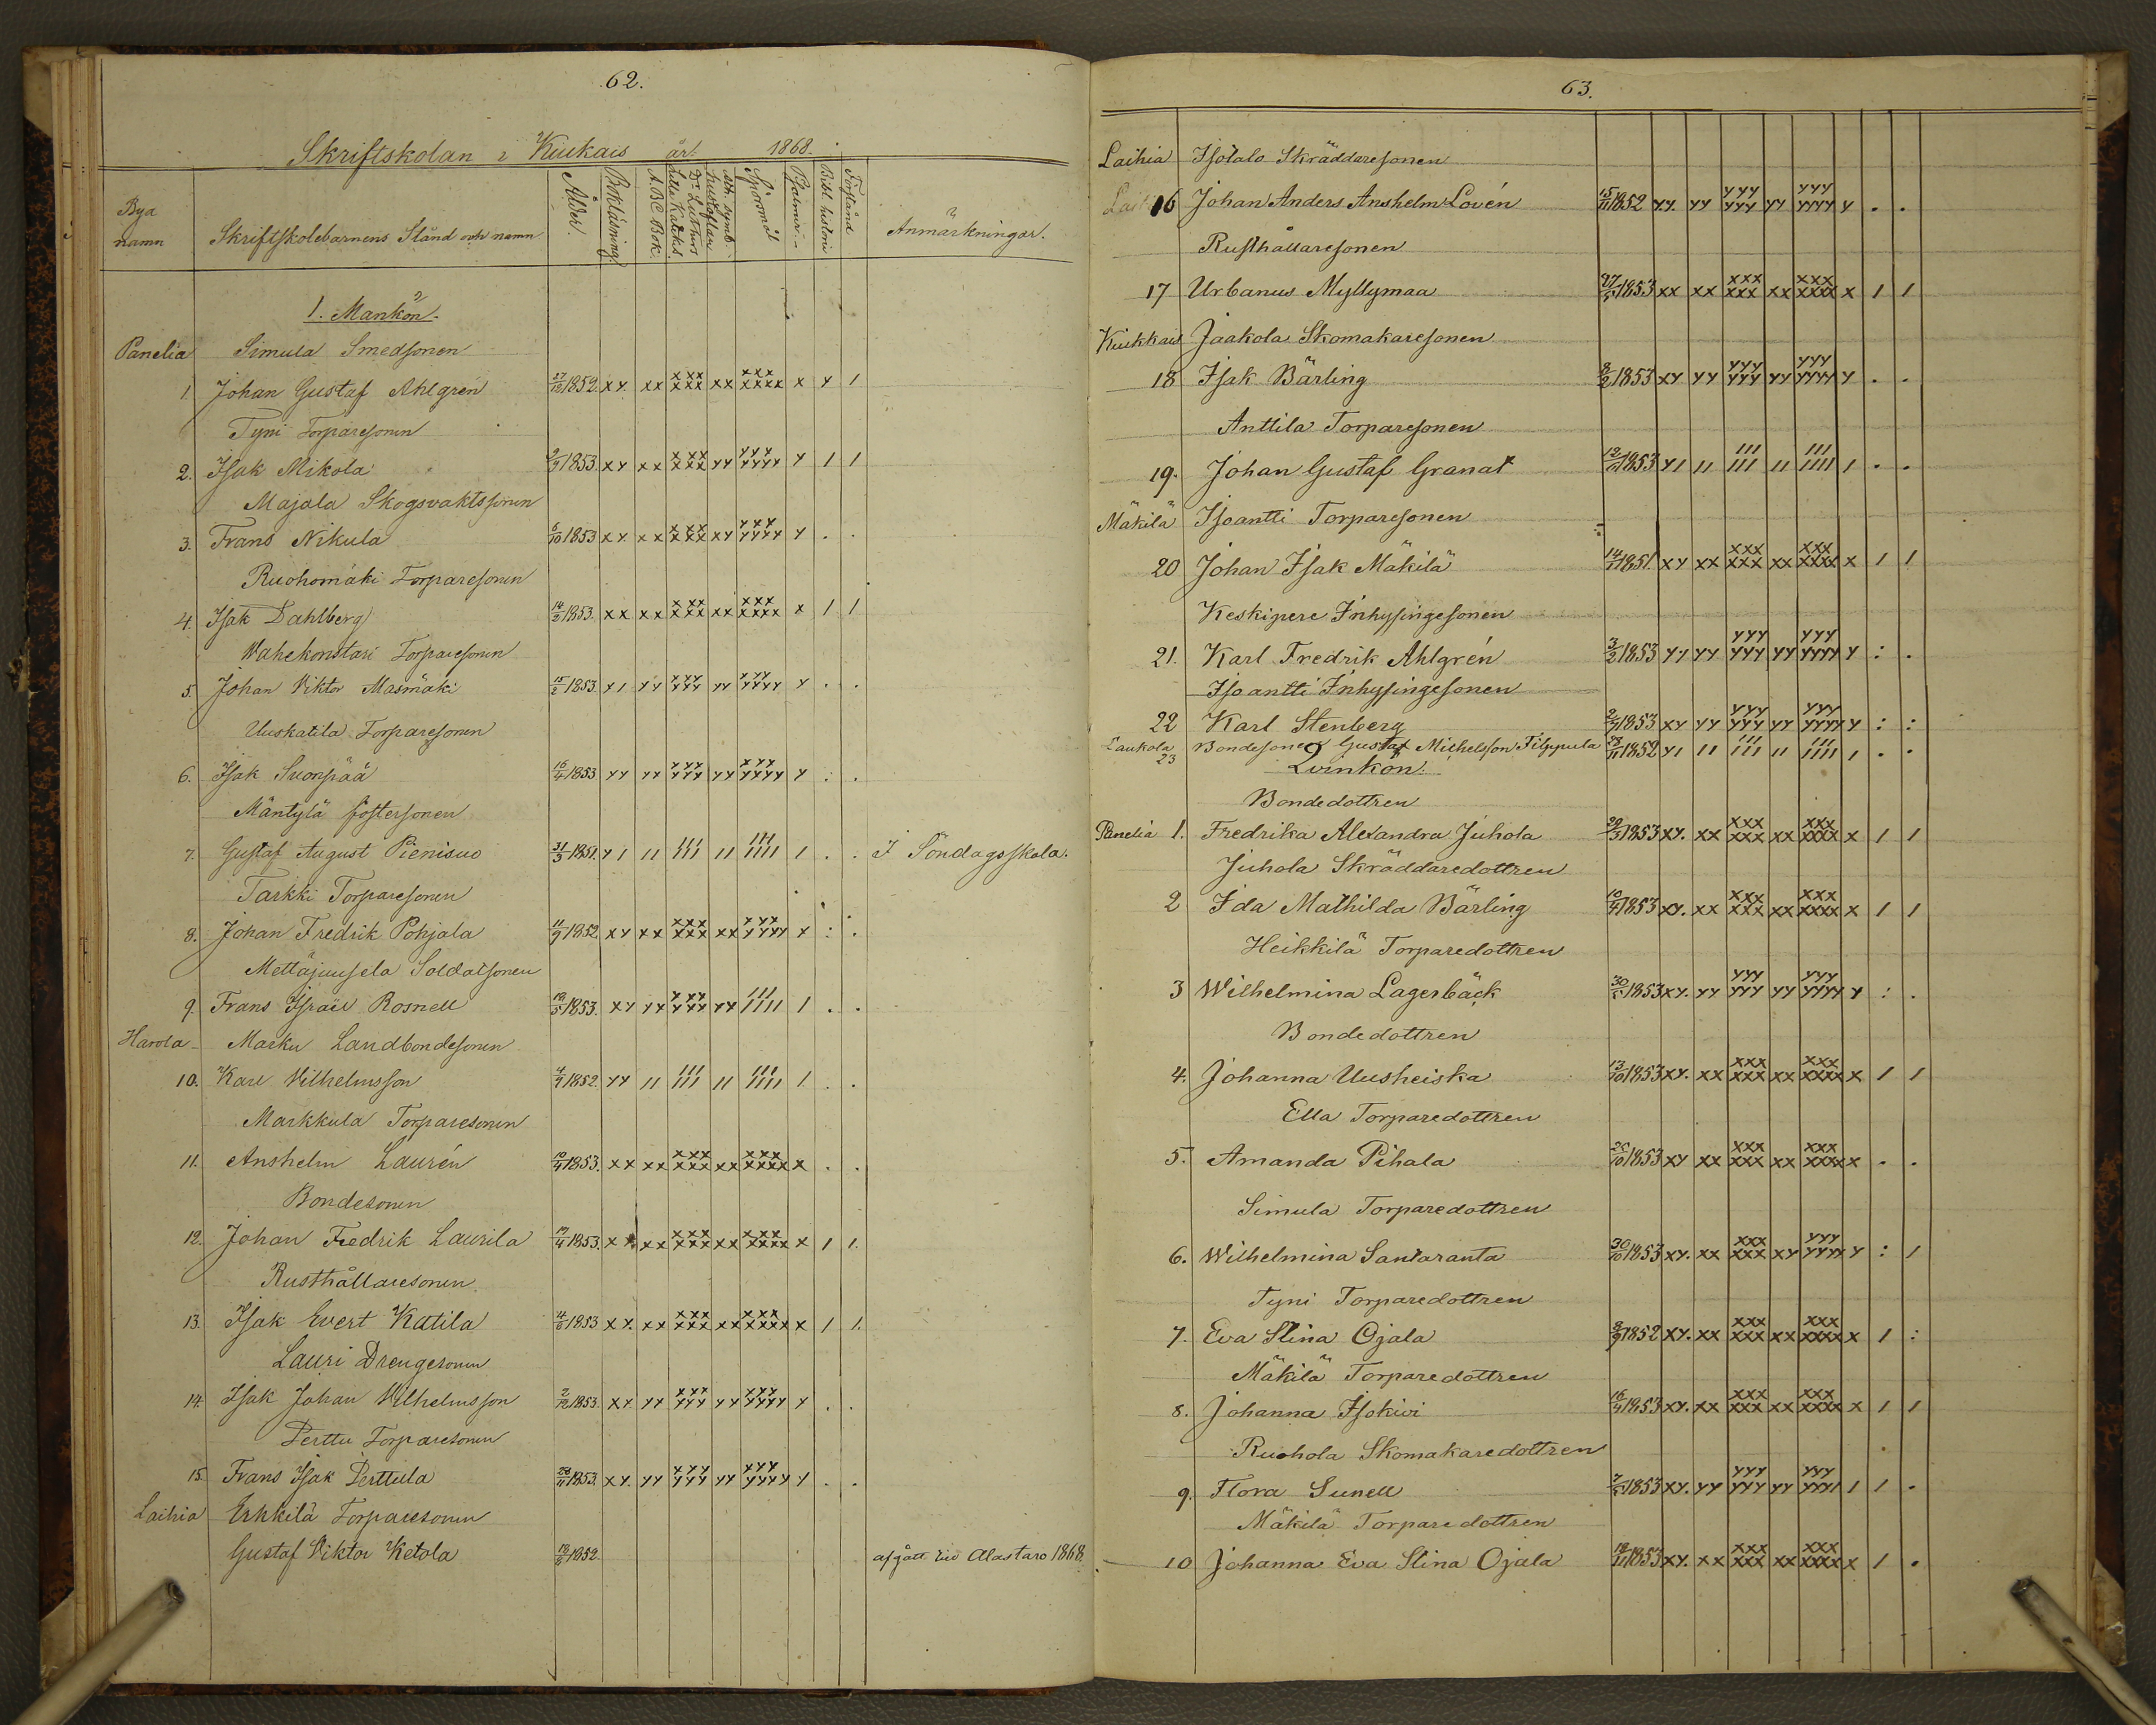 62.
Skriftskolan i Kiukais år 1868.
Bya namn
Skriftskolebarnens Stånd och namn
Ålder.
Bokläsning.
A.B.C. Bok.
Lilla Katekes.
Dr Luthers
hustaflan
Ath. symb.
Spörsmål
Psalmer.
Bibl. historie
Förstånd
Anmärkningar.
1. Mankön.
Panelia Simula Smedsonen
1. Johan Gustaf Ahlgrén 27/12 1852. xy. xx xxx xxx xx xxx xxxx x y 1
Tyni Torparesonen
2. Isak Mikola 2/3 1853. xy xx xxx xxx yy yyy yyyy y 1 1
Majala Skogsvaktssonen
3. Frans Nikula 6/10 1853 xy xx xxx xxx xy yyy yyyy y . .
Ruohomäki Torparesonen
4. Isak Dahlberg 14/3 1853. xx xx xxx xxx xx xxx xxxx x 1 1
Wahekonstari Torparesonen
5. Johan Viktor Masmäki 15/2 1853. y1 yy yyy yyy yy yyy yyyy y . .
Uuskatila Torparesonen
6. Isak Suonpää 16/4 1853 yy yy yyy yyy yy yyy yyyy y : .
Mäntylä fostersonen
7. Gustaf August Pienisuo 31/3 1851. y1 11 111 111 11 111 1111 1 . . I Söndagsskola.
Tarkki Torparesonen
8. Johan Fredrik Pohjala 11/9 1852 xy xx xxx xxx xx yyy yyyy x : .
Mettäjuusela Soldatsonen
9. Frans Israel Rosnell 19/5 1853. xy yx yyy yyy yy 111 1111 1 . .
Harola Marku Landbondesonen
10. Karl Vilhelmsson 4/9 1852. yy 11 111 111 11 111 1111 1 . .
Markkula Torparesonen
11. Anshelm Laurén 10/4 1853. xx xx xxx xxx xx xxx xxxx x . .
Bondesonen
12. Johan Fredrik Laurila 19/4 1853. xx xx xxx xxx xx xxx xxxx x 1 1.
Rusthållaresonen
13. Isak Evert Katila 4/6 1853 xy. xx xxx xxx xx xxx xxxx x 1 1.
Lauri Drengesonen
14. Isak Johan Vilhelmsson 2/12 1853. xy yy xxx yyy yy yyy yyyy y . .
Perttu Torparesonen
15. Frans Isak Perttula 28/11 1853. xy. yy yyy yyy yy yyy yyyy y . .
Laihia Erkkilä Torparesonen
Gustaf Viktor Ketola 18/6 1852 afgått till Alastaro 1868.
63.
Laihia Isotalo Skräddaresonen
16 Johan Anders Anshelm Lovén 15/11 1852 yy. yy yyy yyy yy yyy yyyy y . .
Rusthållaresonen
17 Urbanus Myllymaa 27/5 1853 xx xx xxx xxx xx xxx xxxx x 1 1
Kiukkais Jaakola Skomakaresonen
18 Isak Bärling 8/2 1853 xy yy yyy yyy yy yyy yyyy y . .
Anttila Torparesonen
19. Johan Gustaf Granat 12/11 1853 y1 11 111 111 11 111 1111 1 . .
Mäkilä Isoantti Torparesonen
20 Johan Isak Mäkilä 14/11 1851. xy xx xxx xxx xx xxx xxxx x 1 1
Keskipere Inhysingesonen
21. Karl Fredrik Ahlgrén 3/2 1853 yy yy yyy yyy yy yyy yyyy y : .
Isoantti Inhysingesonen
22 Karl Stenberg 2/3 1853 xy yy yyy yyy yy yyy yyyy y : :
Laukola 23 Bondesonen Gustaf Michelsson Filppula 23/11 1852 y1 11 111 111 11 111 1111 1 . .
2 Qvinkön.
Bondedottren
Panelia 1. Fredrika Alexandra Juhola 29/3 1853 xy. xx xxx xxx xx xxx xxxx x 1 1
Juhola Skräddaredottren
2 Ida Mathilda Bärling 10/4 1853 xy. xx xxx xxx xx xxx xxxx x 1 1
Heikkilä Torparedottren
3 Wilhelmina Lagerbäck 30/5 1853 xy. yy yyy yyy yy yyy yyyy y : .
Bondedottren
4. Johanna Uusheiska 13/10 1853 xy. xx xxx xxx xx xxx xxxx x 1 1
Ella Torparedottren
5. Amanda Pihala 26/10 1853 xy xx xxx xxx xx xxx xxxx x . .
Simula Torparedottren
6. Wilhelmina Santaranta 30/10 1853 xy. xx xxx xxx xy yyy yyyy y : 1
Tyni Torparedottren
7. Eva Stina Ojala 8/9 1852 xy. xx xxx xxx xx xxx xxxx x 1 :
Mäkilä Torparedottren
8. Johanna Isokivi 16/4 1853 xy. xx xxx xxx xx xxx xxxx x 1 1
Ruohola Skomakaredottren
9. Flora Sunell 7/5 1853 xy. yy yyy yyy yy yyy yyy1 1 1 .
Mäkilä Torparedottren
10 Johanna Eva Stina Ojala 18/11 1853 xy. xx xxx xxx xx xxx xxxx x 1 .